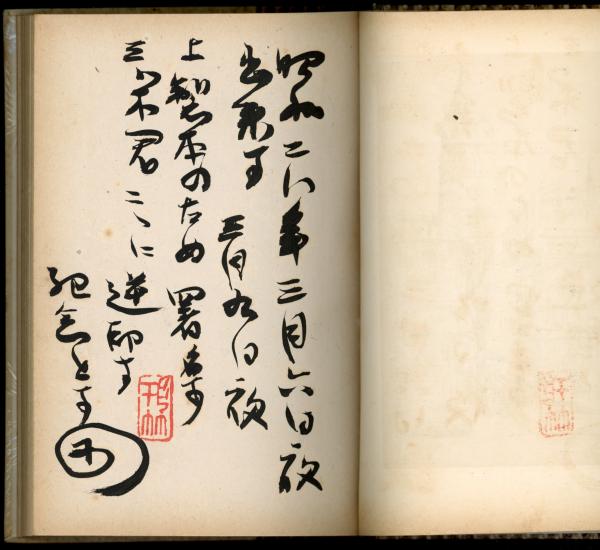 昭和二八年三月六日夜
出来す 三月九日夜
上製本のため 署名す
君 こゝに 逆印す
紀念とす